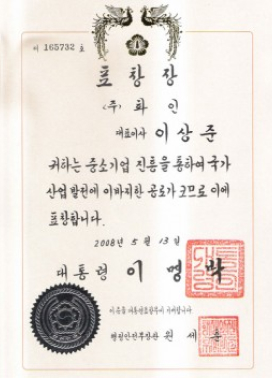 제 165732 호
표 창 장
(주) 화 인
대표이사 이 상 준
귀하는 중소기업 진흥을 통하여 국가
산업 발전에 이바지한 공로가 크므로 이에
표창합니다.
2008년 5월 13일
대 통 령 이 명 박
이 증을 대통령표창부에 기재합니다.
행정안전부장관 원 세 훈